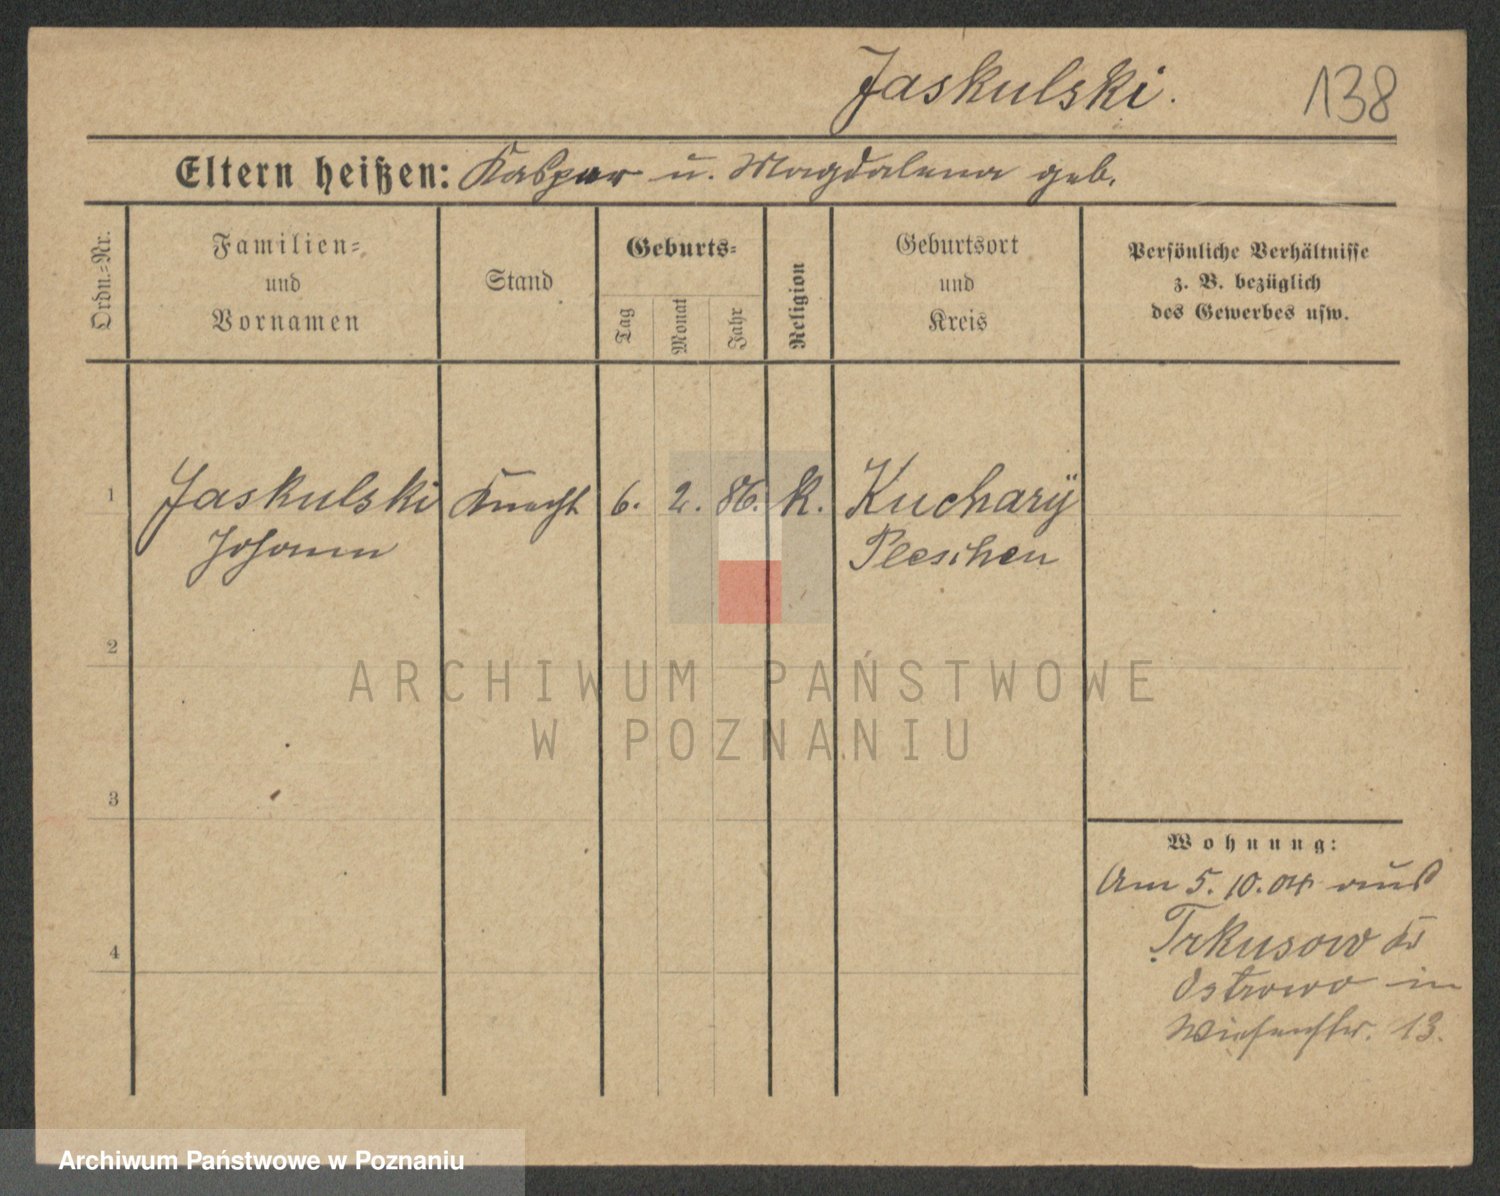 Jaskulski.
138
Eltern heißen: Kaspar u. Magdalena geb.
Ordn.=Nr.
Familien=
und
Vornamen
Stand
Geburts=
Tag
Monat
Jahr
Religion
Geburtsort
und
Kreis
Persönliche Verhältnisse
z. B. bezüglich
des Gewerbes usw.
1 Jaskulski Knecht 6. 2. 86. K. Kuchary
Johann Pleschen
2
3
4
Wohnung:
Am 5. 10. 04 aus
Trkusow Kr
Ostrowo in
Wiesenstr. 13.
ARCHIWUM PAŃSTWOWE
W POZNANIU
Archiwum Państwowe w Poznaniu